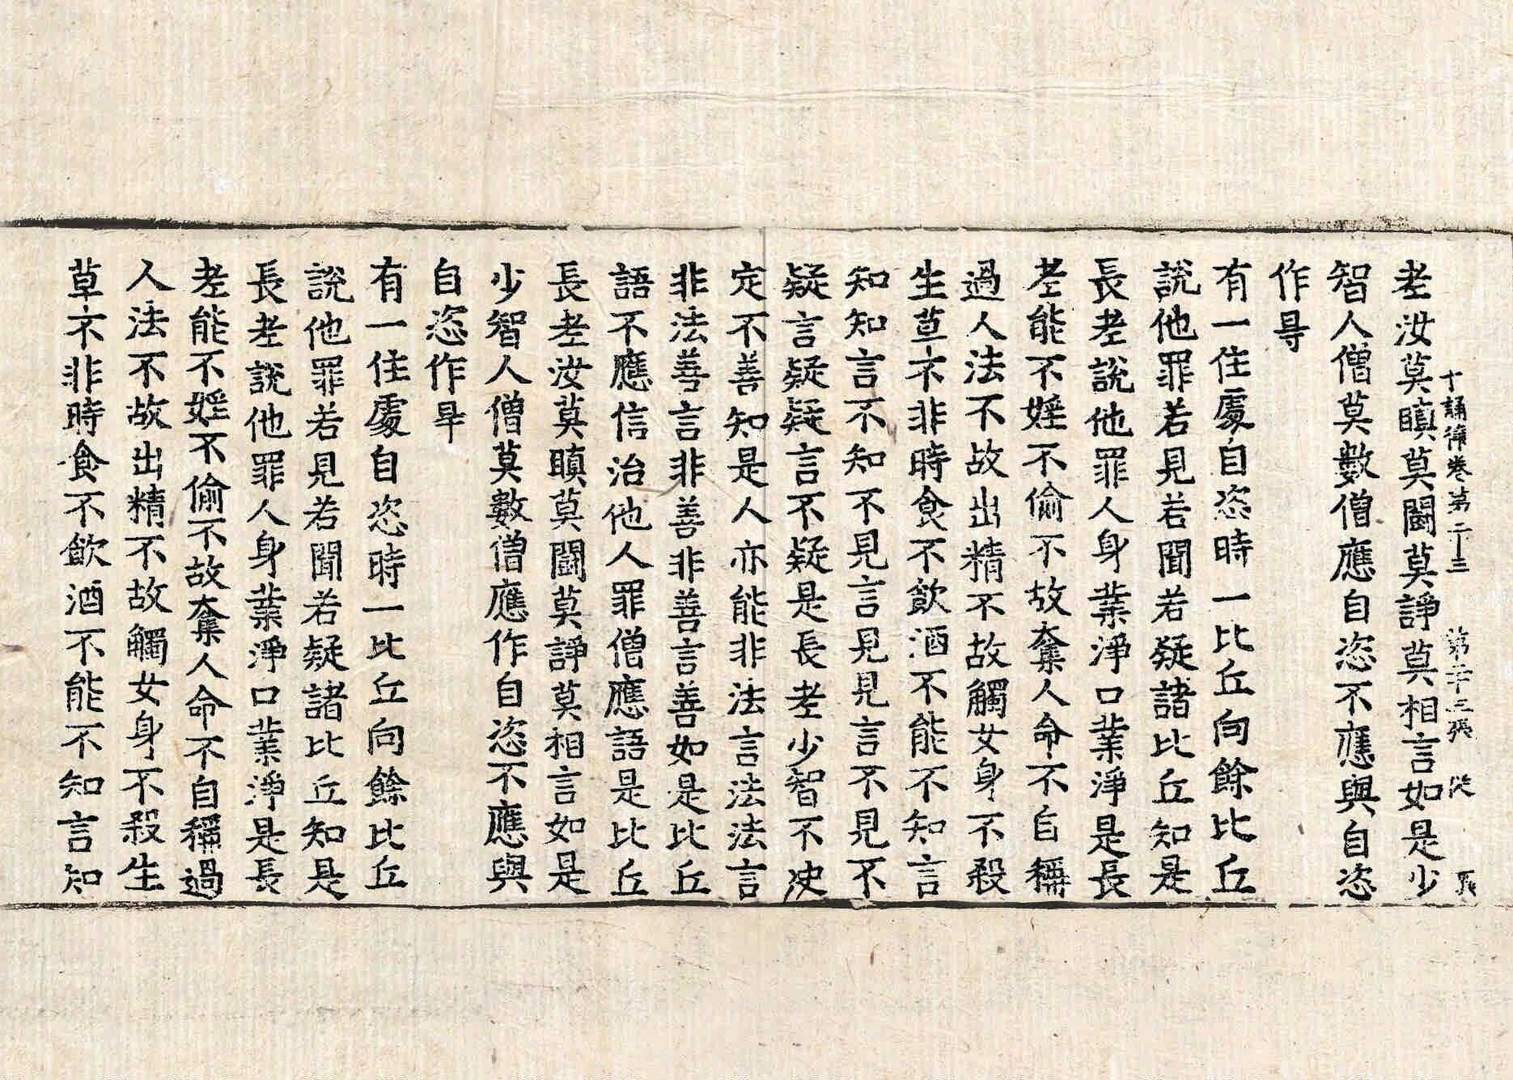 十誦律卷第二十三 張
老汝莫瞋莫鬪莫諍莫相言如是少
智人僧莫數僧應自恣不應與自恣
作㝵
有一住處自恣時一比丘向餘比丘
說他罪若見若聞若疑諸比丘知是
長老說他罪人身業淨口業淨是長
老能不婬不偷不故奪人命不自稱
過人法不故出精不故觸女身不殺
生草木非時食不飲酒不能不知言
知知言不知不見言見見言不見不
疑言疑疑言不疑是長老少智不决
定不善知是人亦能非法言法法言
非法善言非善非善言善如是比丘
語不應信治他人罪僧應語是比丘
長老汝莫瞋莫鬪莫諍莫相言如是
少智人僧莫數僧應作自恣不應與
自恣作㝵
有一住處自恣時一比丘向餘比丘
說他罪若見若聞若疑諸比丘知是
長老說他罪人身業淨口業淨是長
老能不婬不偷不故奪人命不自稱過
人法不故出精不故觸女身不殺生
草木非時食不飲酒不能不知言知